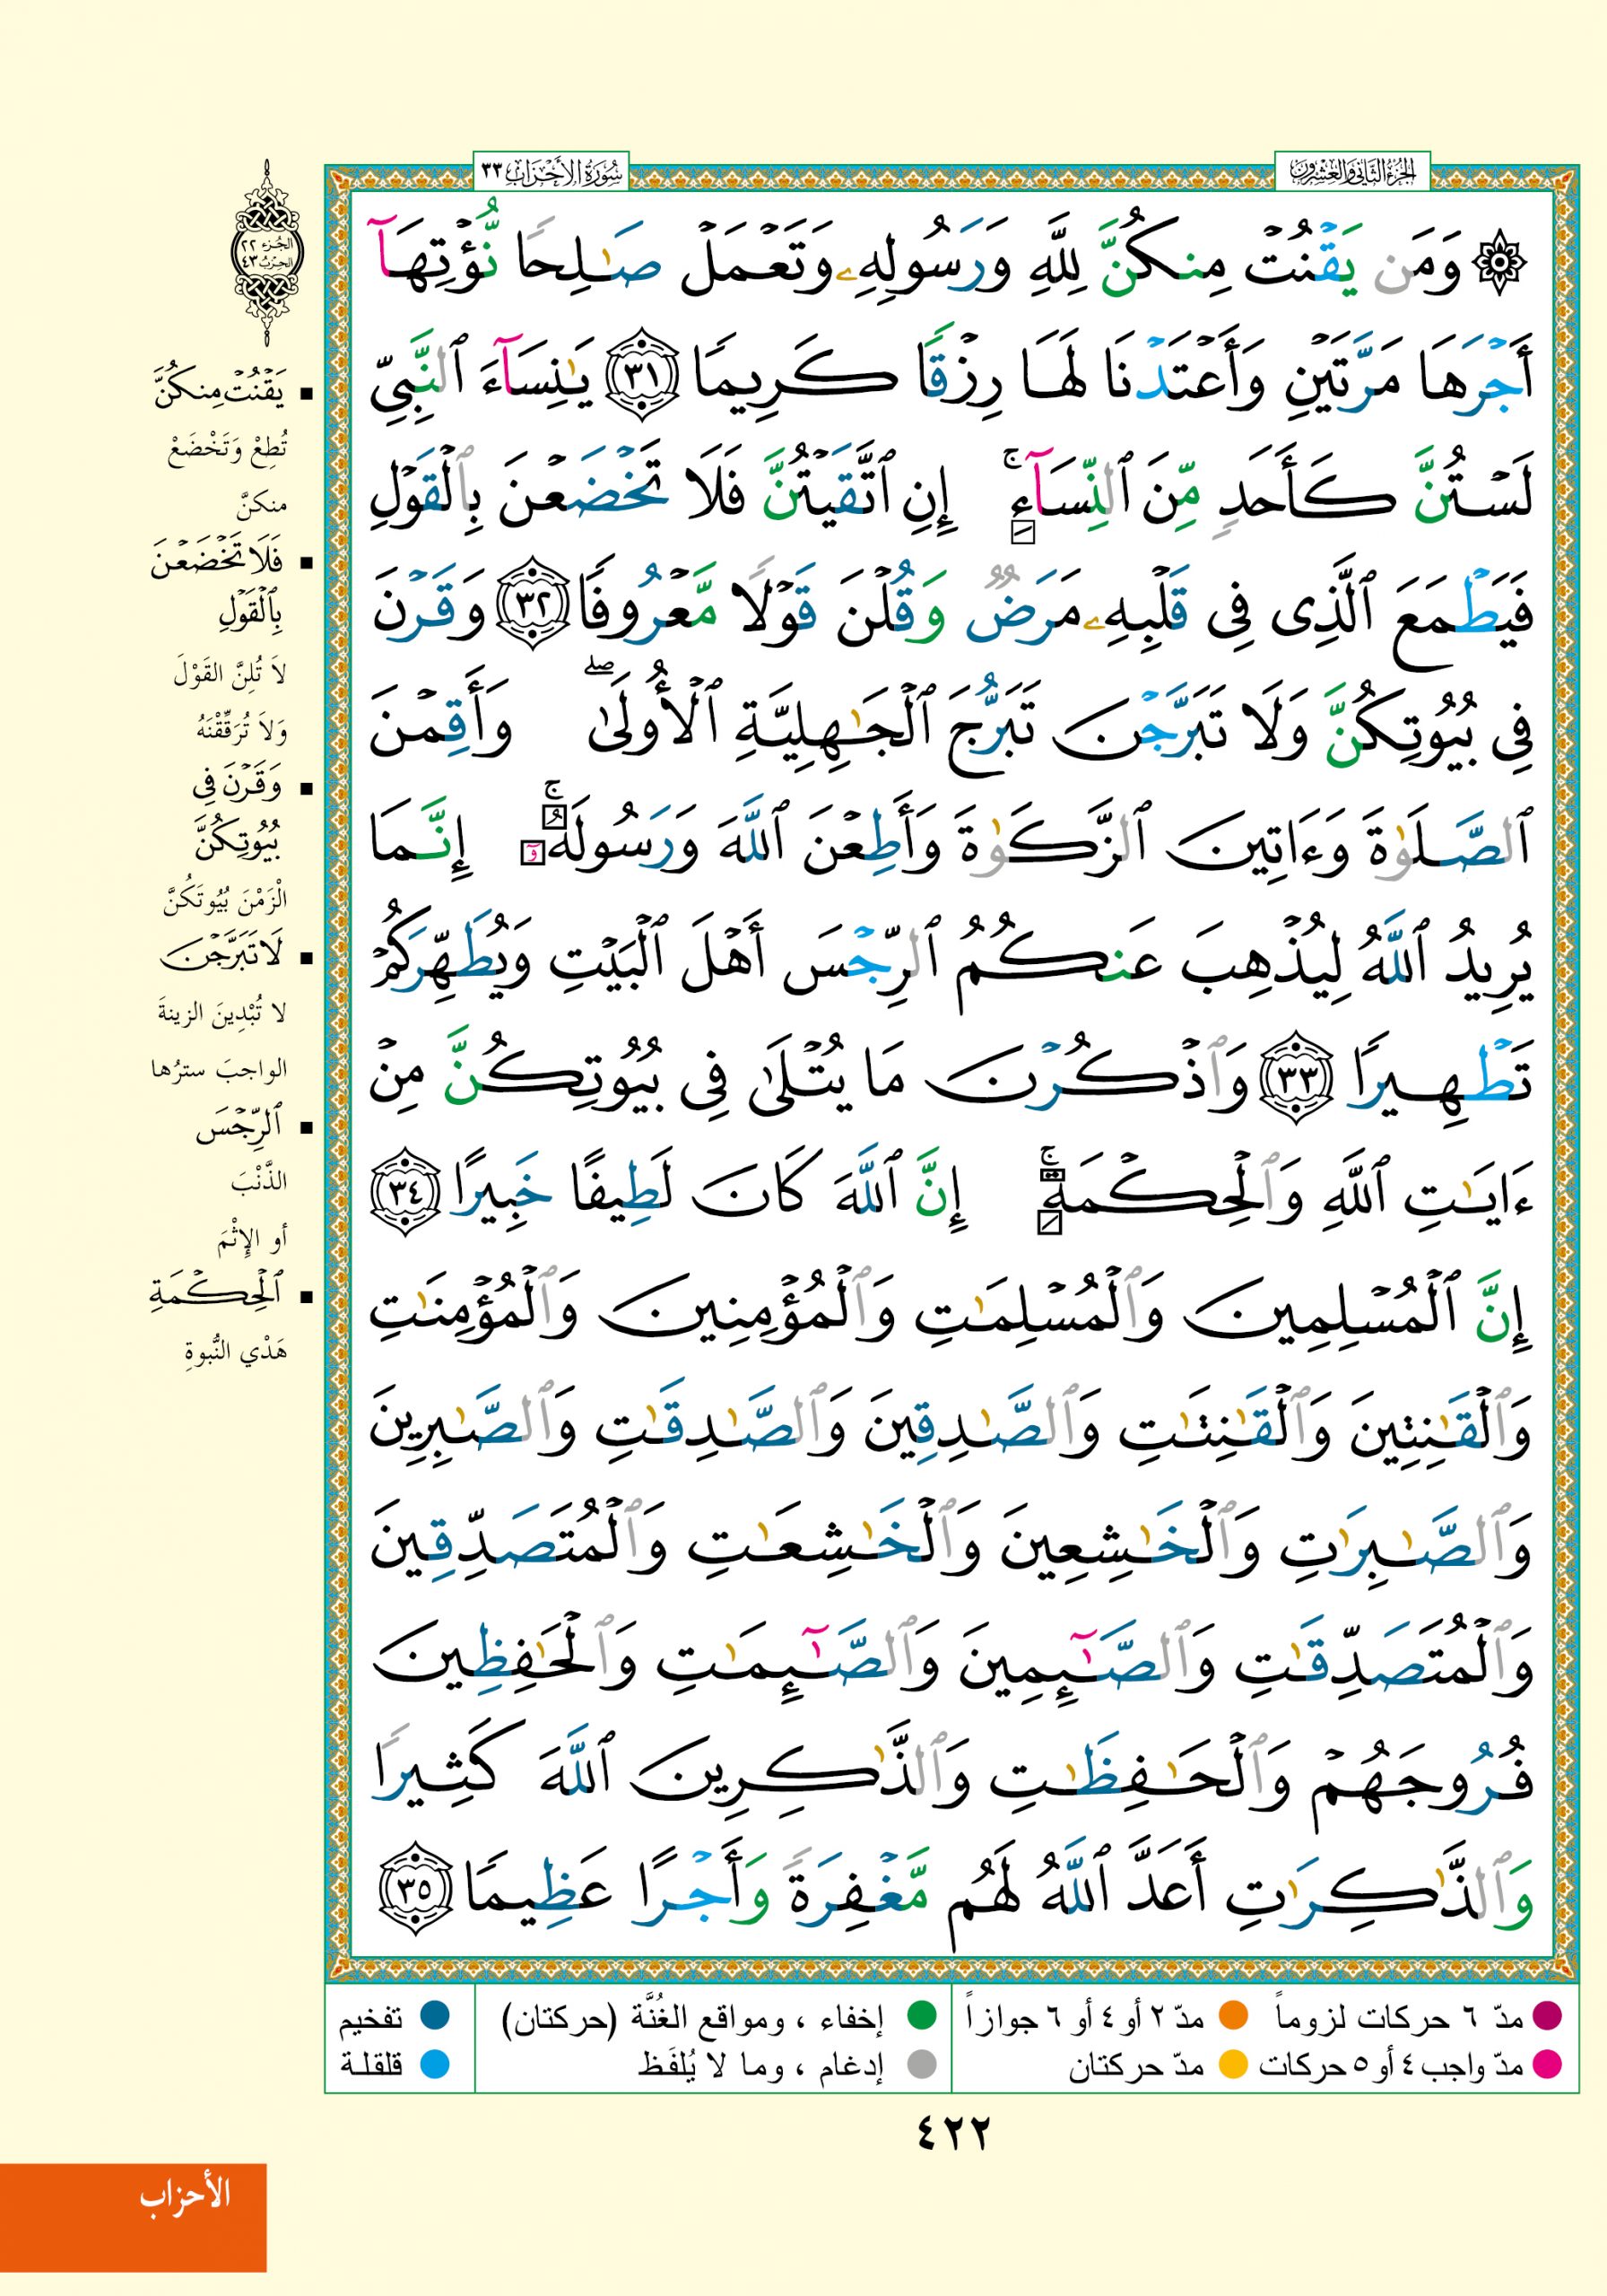 الجزء الثاني والعشرون
سورة الأحزاب ٣٣
۞ وَمَن يَقْنُتْ مِنكُنَّ لِلَّهِ وَرَسُولِهِۦ وَتَعْمَلْ صَـٰلِحًا نُّؤْتِهَآ
أَجْرَهَا مَرَّتَيْنِ وَأَعْتَدْنَا لَهَا رِزْقًا كَرِيمًا ٣١ يَـٰنِسَآءَ ٱلنَّبِىِّ
لَسْتُنَّ كَأَحَدٍ مِّنَ ٱلنِّسَآءِ ۚ إِنِ ٱتَّقَيْتُنَّ فَلَا تَخْضَعْنَ بِٱلْقَوْلِ
فَيَطْمَعَ ٱلَّذِى فِى قَلْبِهِۦ مَرَضٌ وَقُلْنَ قَوْلًا مَّعْرُوفًا ٣٢ وَقَرْنَ
فِى بُيُوتِكُنَّ وَلَا تَبَرَّجْنَ تَبَرُّجَ ٱلْجَـٰهِلِيَّةِ ٱلْأُولَىٰ ۖ وَأَقِمْنَ
ٱلصَّلَوٰةَ وَءَاتِينَ ٱلزَّكَوٰةَ وَأَطِعْنَ ٱللَّهَ وَرَسُولَهُۥٓ ۚ إِنَّمَا
يُرِيدُ ٱللَّهُ لِيُذْهِبَ عَنكُمُ ٱلرِّجْسَ أَهْلَ ٱلْبَيْتِ وَيُطَهِّرَكُمْ
تَطْهِيرًا ٣٣ وَٱذْكُرْنَ مَا يُتْلَىٰ فِى بُيُوتِكُنَّ مِنْ
ءَايَـٰتِ ٱللَّهِ وَٱلْحِكْمَةِ ۚ إِنَّ ٱللَّهَ كَانَ لَطِيفًا خَبِيرًا ٣٤
إِنَّ ٱلْمُسْلِمِينَ وَٱلْمُسْلِمَـٰتِ وَٱلْمُؤْمِنِينَ وَٱلْمُؤْمِنَـٰتِ
وَٱلْقَـٰنِتِينَ وَٱلْقَـٰنِتَـٰتِ وَٱلصَّـٰدِقِينَ وَٱلصَّـٰدِقَـٰتِ وَٱلصَّـٰبِرِينَ
وَٱلصَّـٰبِرَٰتِ وَٱلْخَـٰشِعِينَ وَٱلْخَـٰشِعَـٰتِ وَٱلْمُتَصَدِّقِينَ
وَٱلْمُتَصَدِّقَـٰتِ وَٱلصَّـٰٓئِمِينَ وَٱلصَّـٰٓئِمَـٰتِ وَٱلْحَـٰفِظِينَ
فُرُوجَهُمْ وَٱلْحَـٰفِظَـٰتِ وَٱلذَّٰكِرِينَ ٱللَّهَ كَثِيرًا
وَٱلذَّٰكِرَٰتِ أَعَدَّ ٱللَّهُ لَهُم مَّغْفِرَةً وَأَجْرًا عَظِيمًا ٣٥
الجزء ٢٢
الحزب ٤٣
▪ يَقْنُتْ مِنكُنَّ
تُطِعْ وَتَخْضَعْ
منكنَّ
▪ فَلَا تَخْضَعْنَ
بِٱلْقَوْلِ
لاَ تُلِنَّ القَوْلَ
وَلاَ تُرَقِّقْنَهُ
▪ وَقَرْنَ فِى
بُيُوتِكُنَّ
الْزَمْنَ بُيُوتَكُنَّ
▪ لَا تَبَرَّجْنَ
لا تُبْدِينَ الزينةَ
الواجبَ سترُها
▪ ٱلرِّجْسَ
الذَّنْبَ
أو الإِثْمَ
▪ ٱلْحِكْمَةِ
هَدْيِ النُّبوةِ
مدّ ٦ حركات لزوماً مدّ ٢ أو ٤ أو ٦ جوازاً إخفاء ، ومواقع الغُنَّة (حركتان) تفخيم
مدّ واجب ٤ أو ٥ حركات مدّ حركتان إدغام ، وما لا يُلفَظ قلقلة
٤٢٢
الأحزاب